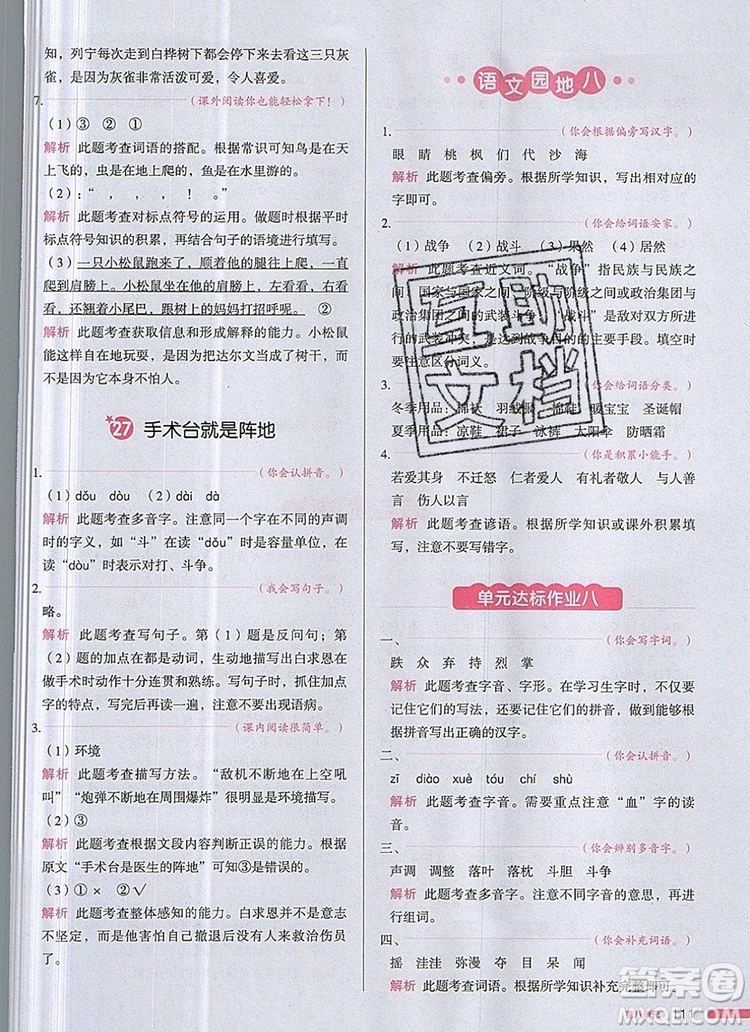 知，列宁每次走到白桦树下都会停下来看这三只灰
雀，是因为灰雀非常活泼可爱，令人喜爱。
7.（课外阅读你也能轻松拿下！）
（1）③ ② ①
解析 此题考查词语的搭配。根据常识可知鸟是在天
上飞的，虫是在地上爬的，鱼是在水里游的。
（2）：“ ， ， ！ 。”
解析 此题考查对标点符号的运用。做题时根据平时
标点符号知识的积累，再结合句子的语境进行填写。
（3）一只小松鼠跑来了，顺着他的腿往上爬，一直
爬到肩膀上。小松鼠坐在他的肩膀上，左看看，右看
看，还翘着小尾巴，跟树上的妈妈打招呼呢。 ②
解析 此题考查获取信息和形成解释的能力。小松鼠
能这样自在地玩耍，是因为把达尔文当成了树干，而
不是因为它本身不怕人。
27 手术台就是阵地
1.（你会认拼音。）
（1）dǒu dòu （2）dài dà
解析 此题考查多音字。注意同一个字在不同的声调
时的字义，如“斗”在读“dǒu”时表示容量单位，在
读“dòu”时表示对打、斗争。
2.（我会写句子。）
略。
解析 此题考查写句子。第（1）题是反问句；第
（2）题的加点在都是动词，生动地描写出白求恩在
做手术时动作十分连贯和熟练。写句子时要抓住加点
字的特点，写好再读一遍，注意不要出现语病。
3.（课内阅读很简单。）
（1）环境
解析 此题考查描写方法。“敌机不断地在上空吼
叫”“炮弹不断地在周围爆炸”很明显是环境描写。
（2）③
解析 此题考查根据文段内容判断正误的能力。根据
原文“手术台是医生的阵地”可知③是错误的。
（3）① × ②√
解析 此题考查整体感知的能力。白求恩并不是意志
不坚定，而是以不会由于自己撤退后没有人来救治伤
员。
语文园地八
1.（你会根据偏旁写汉字。）
眼 睛 桃 枫 们 代 沙 海
解析 此题考查偏旁。根据所学知识，写出相应的
字即可。
2.（你会给词语安家。）
（1）战争 （2）战斗 （3）果然 （4）居然
解析 此题考查近义词。“战争”指民族与民族之
间、国家与国家之间、阶级与阶级之间或政治集团与
政治集团之间的武装斗争；“战斗”是敌对双方所进
行的武装冲突，是达到战争目的的主要手段。填空时
要注意区分词义。
3.（你会给词语分类。）
冬季用品：棉袄 羽绒服 棉鞋 暖宝宝 圣诞帽
夏季用品：凉鞋 裙子 泳裤 太阳伞 防晒霜
4.（你是积累小能手。）
若爱其身 不迁怒 仁者爱人 有礼者敬人 善
言 伤人以言
解析 此题考查谚语。根据所学知识或课外积累填
写，注意不要写错字。
单元达标作业八
一、（你会写字词。）
跌 众 弃 持 烈 掌
解析 此题考查字音、字形。在生活中，不仅要
记住它们的写法，还应该记住它们的拼音，这样才能
根据拼音写出正确的汉字。
二、（你会认拼音。）
zī diào xuè tóu chí shù
解析 此题考查字音。需要重点注意“血”字的读
音。
三、（你会辨别多音字。）
声调 调整 落叶 落枕 斗胆 斗争
解析 此题考查多音字。根据不同字音的意思，再
进行组词。
四、（你会补充词语。）
摇 洼洼 弥漫 夺目 呆呆 闻
解析 此题考查词语。根据所学知识补充完整即可。
互助
文档
答案圈